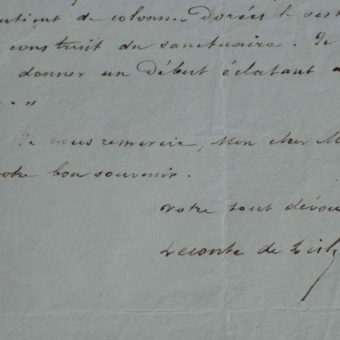 de colonnes dorées le vest
construit du sanctuaire. Je
donner un début éclatant
"
Je vous remercie, Mon cher M
votre bon souvenir.
votre tout dévoué
Leconte de Lisle